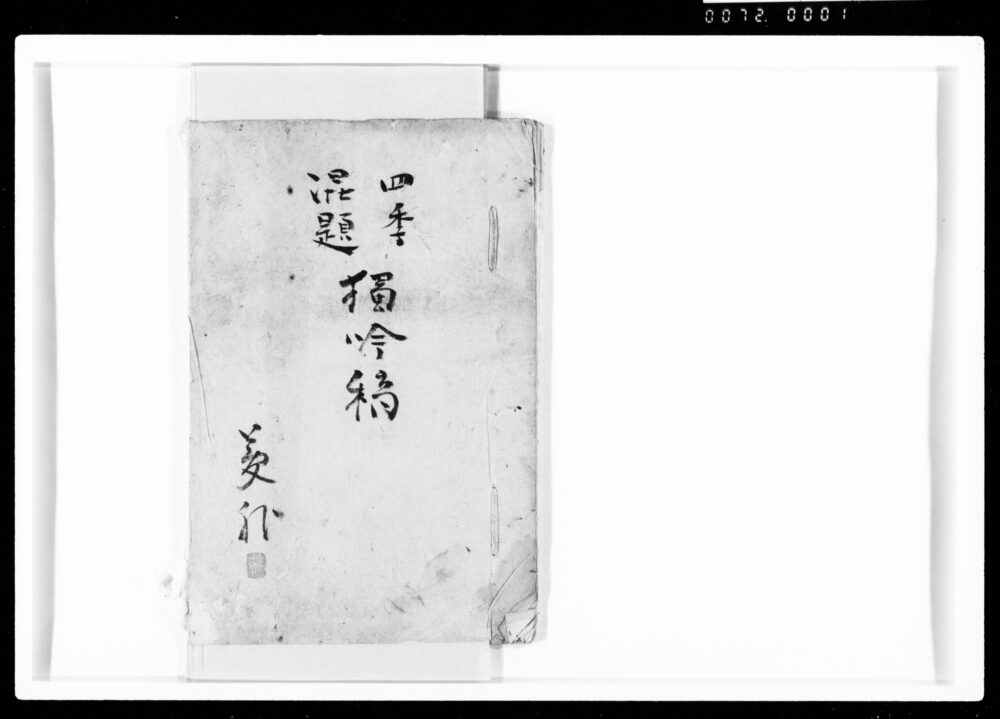 0072. 0001
四季
混題
獨吟稿
菱船